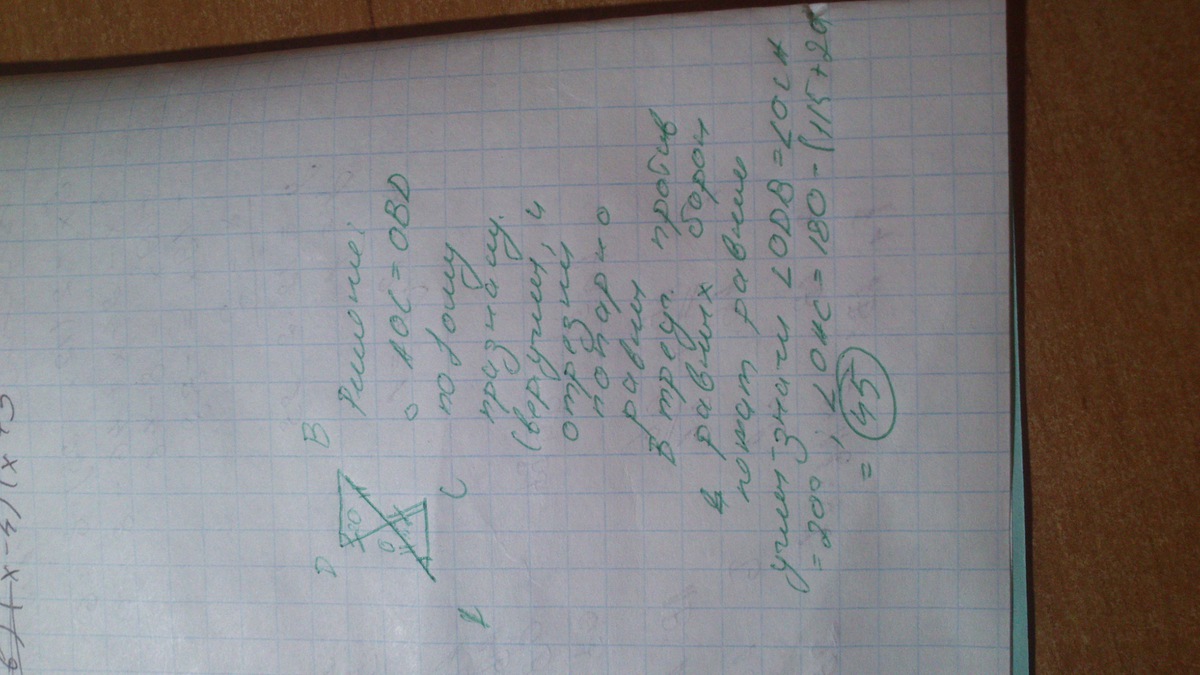 6) (x-4)(x+3
D B
20
O
A C
Решение:
AOC = OBD
по 1ому
признаку.
(верт углы и
отрезки
попарно
равны
В треуг. против
равных сторон
лежат равные
углы значи ∠ODB=∠OCA
=20, ∠OAC=180-(115+20
= 45